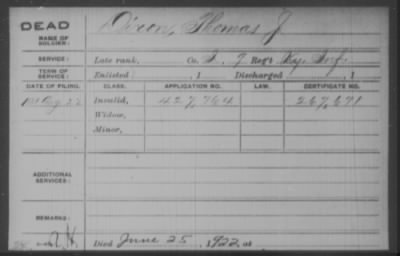 DEAD
NAME OF SOLDIER: Dixon, Thomas J.
SERVICE: Late rank, Co. 9 Reg't Ky. Inf.
TERM OF SERVICE: Enlisted , 1 Discharged , 1
DATE OF FILING. CLASS. APPLICATION NO. LAW. CERTIFICATE NO.
Invalid, 427,764 267,671
Widow,
Minor,
ADDITIONAL SERVICES:
REMARKS:
Died June 25, 1922, at